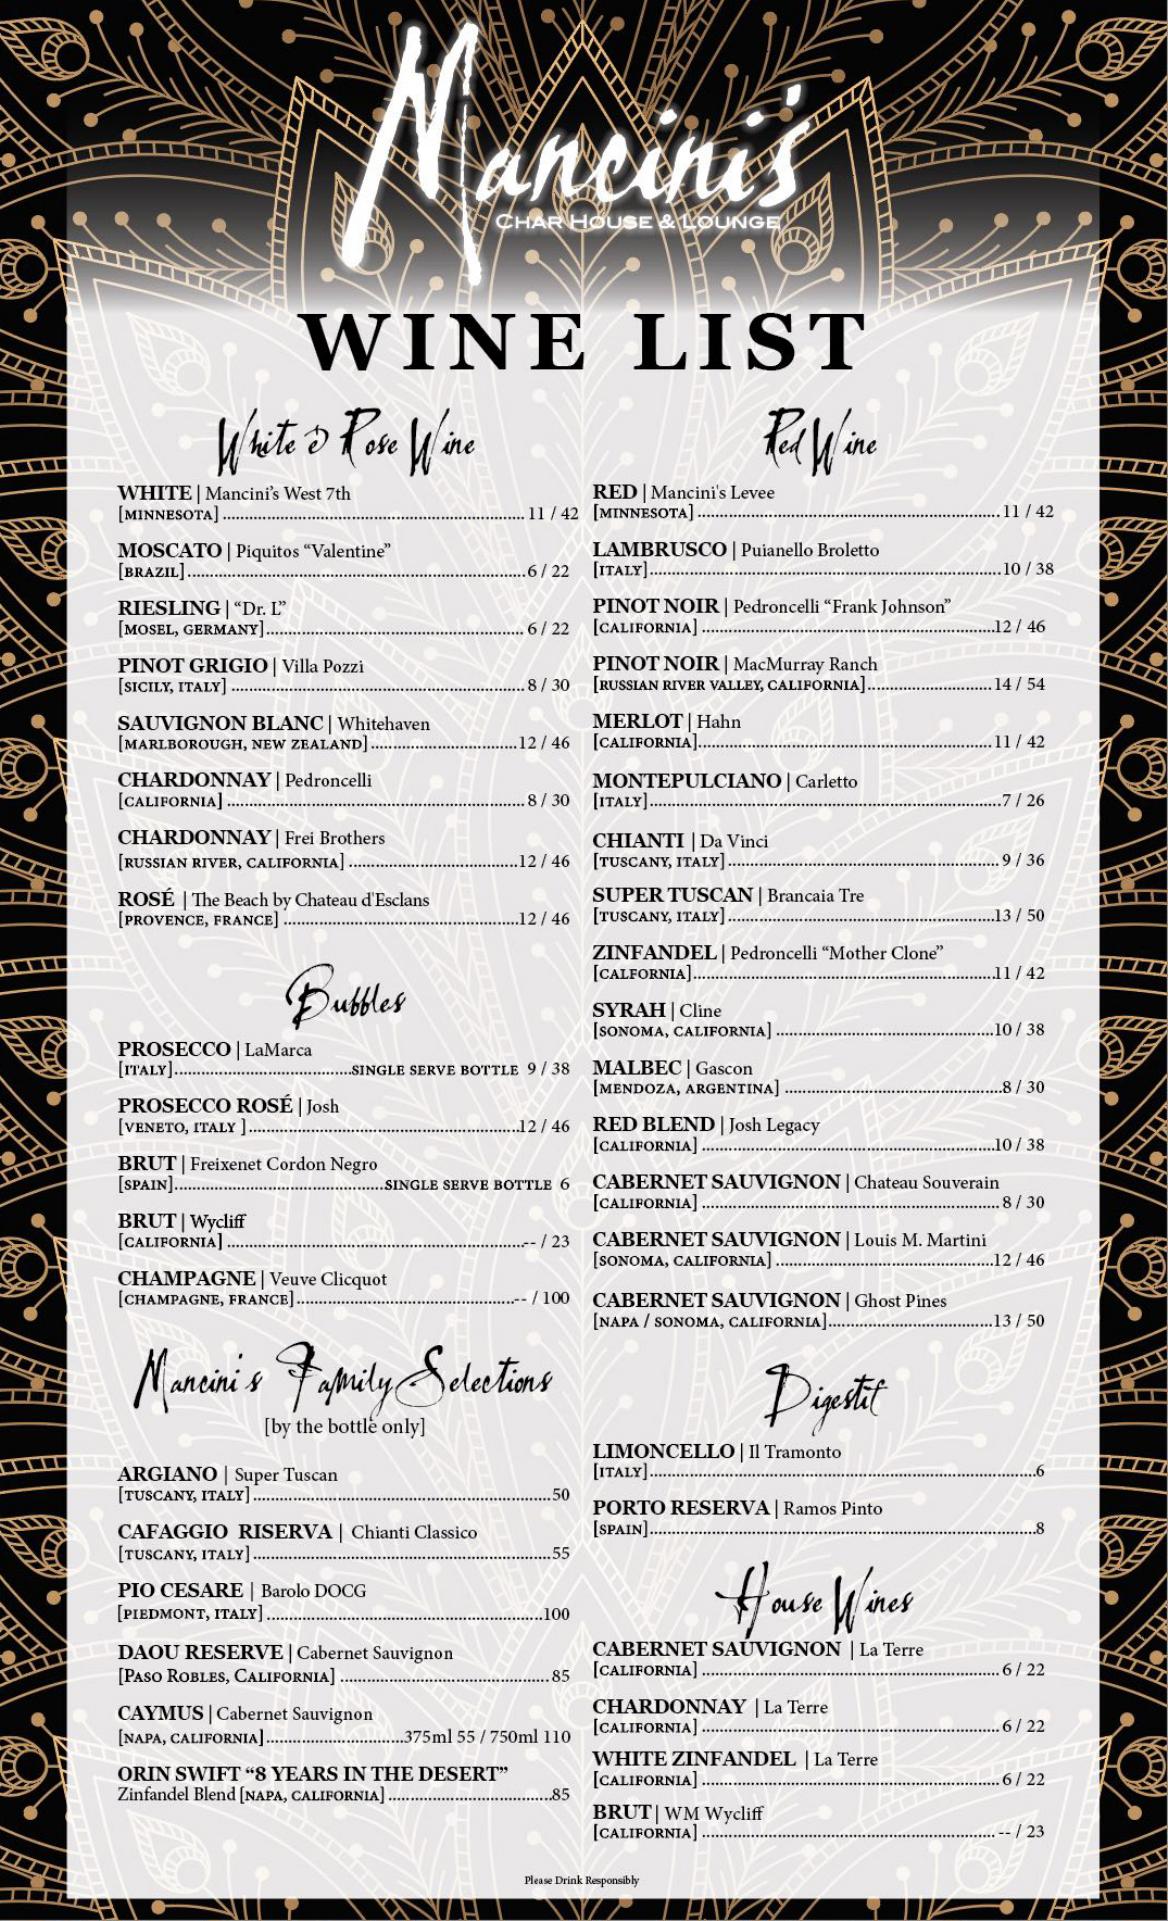 Mancini's
CHAR HOUSE & LOUNGE
WINE LIST
White & Rose Wine
WHITE | Mancini’s West 7th
[MINNESOTA] ........ 11 / 42
MOSCATO | Piquitos “Valentine”
[BRAZIL] ........ 6 / 22
RIESLING | “Dr. L”
[MOSEL, GERMANY] ........ 6 / 22
PINOT GRIGIO | Villa Pozzi
[SICILY, ITALY] ........ 8 / 30
SAUVIGNON BLANC | Whitehaven
[MARLBOROUGH, NEW ZEALAND] ........ 12 / 46
CHARDONNAY | Pedroncelli
[CALIFORNIA] ........ 8 / 30
CHARDONNAY | Frei Brothers
[RUSSIAN RIVER, CALIFORNIA] ........ 12 / 46
ROSÉ | The Beach by Chateau d'Esclans
[PROVENCE, FRANCE] ........ 12 / 46
Bubbles
PROSECCO | LaMarca
[ITALY] ........ SINGLE SERVE BOTTLE 9 / 38
PROSECCO ROSÉ | Josh
[VENETO, ITALY ] ........ 12 / 46
BRUT | Freixenet Cordon Negro
[SPAIN] ........ SINGLE SERVE BOTTLE 6
BRUT | Wycliff
[CALIFORNIA] ........ -- / 23
CHAMPAGNE | Veuve Clicquot
[CHAMPAGNE, FRANCE] ........ -- / 100
Mancini's Family Selections
[by the bottle only]
ARGIANO | Super Tuscan
[TUSCANY, ITALY] ........ 50
CAFAGGIO RISERVA | Chianti Classico
[TUSCANY, ITALY] ........ 55
PIO CESARE | Barolo DOCG
[PIEDMONT, ITALY] ........ 100
DAOU RESERVE | Cabernet Sauvignon
[PASO ROBLES, CALIFORNIA] ........ 85
CAYMUS | Cabernet Sauvignon
[NAPA, CALIFORNIA] ........ 375ml 55 / 750ml 110
ORIN SWIFT “8 YEARS IN THE DESERT”
Zinfandel Blend [NAPA, CALIFORNIA] ........ 85
Red Wine
RED | Mancini's Levee
[MINNESOTA] ........ 11 / 42
LAMBRUSCO | Puianello Broletto
[ITALY] ........ 10 / 38
PINOT NOIR | Pedroncelli “Frank Johnson”
[CALIFORNIA] ........ 12 / 46
PINOT NOIR | MacMurray Ranch
[RUSSIAN RIVER VALLEY, CALIFORNIA] ........ 14 / 54
MERLOT | Hahn
[CALIFORNIA] ........ 11 / 42
MONTEPULCIANO | Carletto
[ITALY] ........ 7 / 26
CHIANTI | Da Vinci
[TUSCANY, ITALY] ........ 9 / 36
SUPER TUSCAN | Brancaia Tre
[TUSCANY, ITALY] ........ 13 / 50
ZINFANDEL | Pedroncelli “Mother Clone”
[CALFORNIA] ........ 11 / 42
SYRAH | Cline
[SONOMA, CALIFORNIA] ........ 10 / 38
MALBEC | Gascon
[MENDOZA, ARGENTINA] ........ 8 / 30
RED BLEND | Josh Legacy
[CALIFORNIA] ........ 10 / 38
CABERNET SAUVIGNON | Chateau Souverain
[CALIFORNIA] ........ 8 / 30
CABERNET SAUVIGNON | Louis M. Martini
[SONOMA, CALIFORNIA] ........ 12 / 46
CABERNET SAUVIGNON | Ghost Pines
[NAPA / SONOMA, CALIFORNIA] ........ 13 / 50
Digestif
LIMONCELLO | Il Tramonto
[ITALY] ........ 6
PORTO RESERVA | Ramos Pinto
[SPAIN] ........ 8
House Wines
CABERNET SAUVIGNON | La Terre
[CALIFORNIA] ........ 6 / 22
CHARDONNAY | La Terre
[CALIFORNIA] ........ 6 / 22
WHITE ZINFANDEL | La Terre
[CALIFORNIA] ........ 6 / 22
BRUT | WM Wycliff
[CALIFORNIA] ........ -- / 23
Please Drink Responsibly